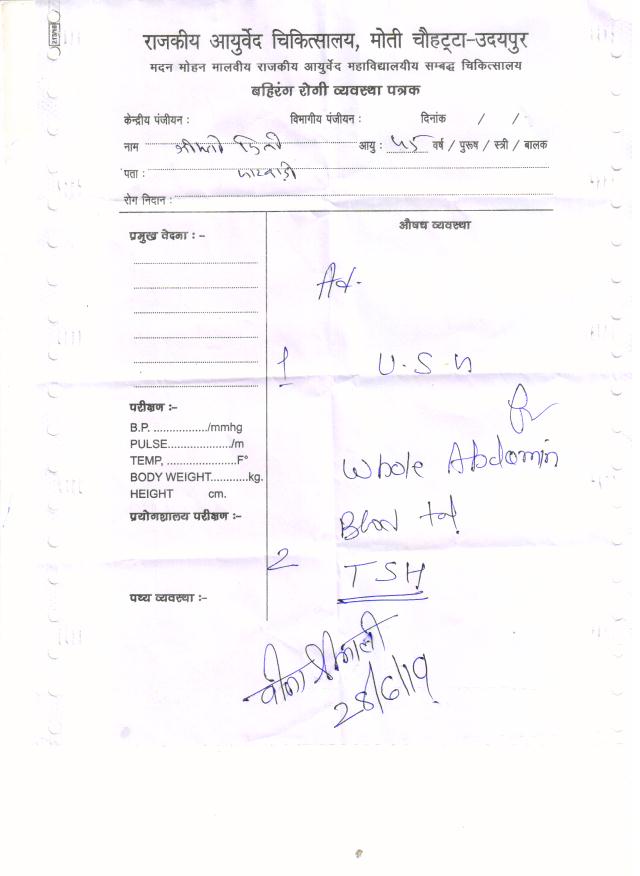 राजकीय आयुर्वेद चिकित्सालय, मोती चौहट्टा-उदयपुर
मदन मोहन मालवीय राजकीय आयुर्वेद महाविद्यालयीय सम्बद्ध चिकित्सालय
बहिरंग रोगी व्यवस्था पत्रक
केन्द्रीय पंजीयन : विभागीय पंजीयन : दिनांक / /
नाम आयु : ५५ वर्ष / पुरूष / स्त्री / बालक
पता :
रोग निदान :
प्रमुख वेदना : -
औषध व्यवस्था
Ad.
1 U.S.G
for
Whole Abdomin
परीक्षण :-
B.P. ................/mmhg
PULSE...................../m
TEMP, .......................F°
BODY WEIGHT............kg.
HEIGHT cm.
प्रयोगशालय परीक्षण :-
Blood
2 TSH
पथ्य व्यवस्था :-
वीना श्रीमाली
28/6/19